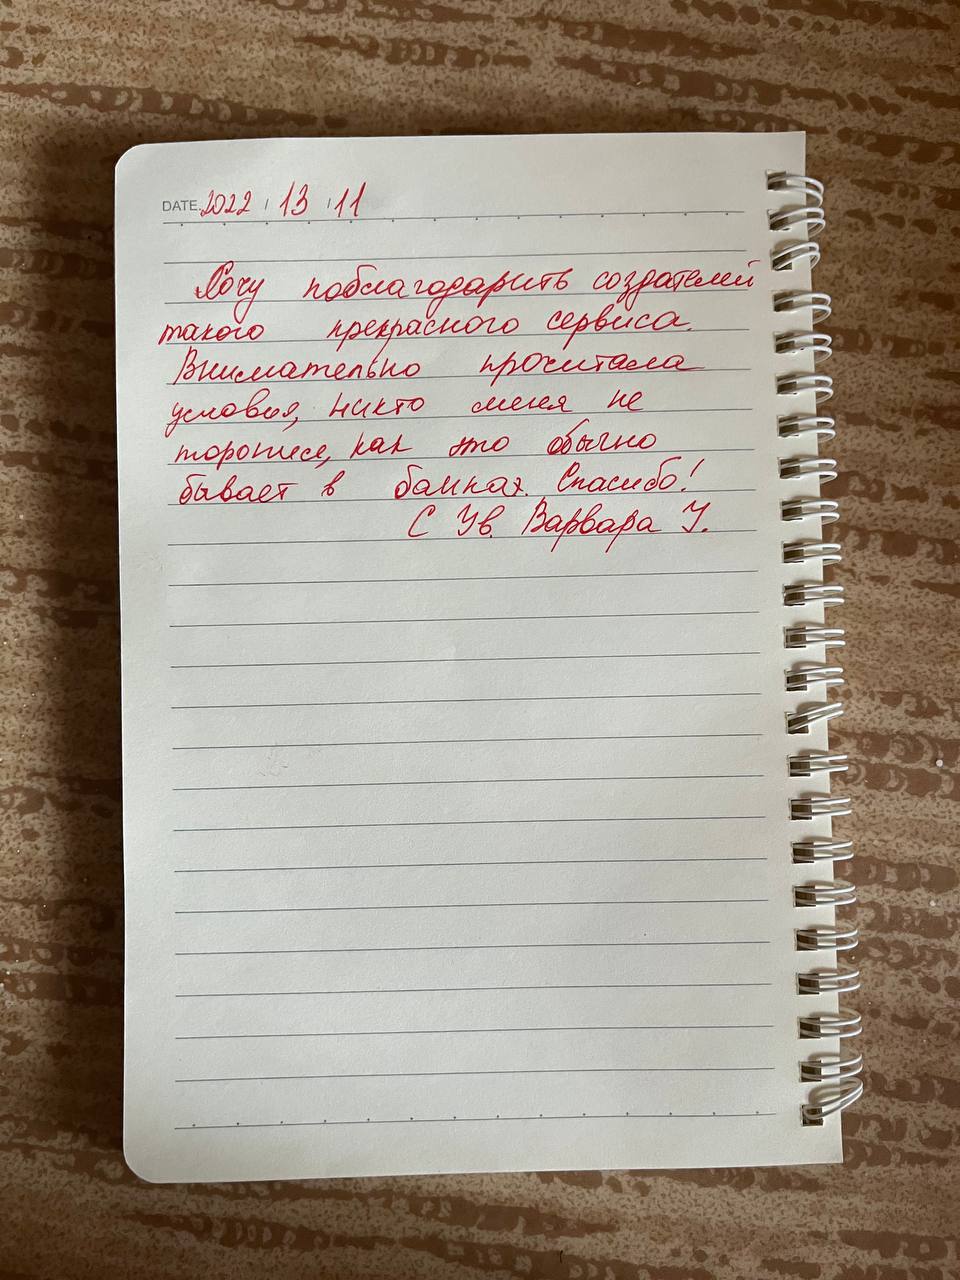 DATE. 2022 / 13 / 11
Хочу поблагодарить создателей
такого прекрасного сервиса.
Внимательно прочитала
условия, никто меня не
торопил, как это обычно
бывает в банках. Спасибо!
С Ув. Варвара У.